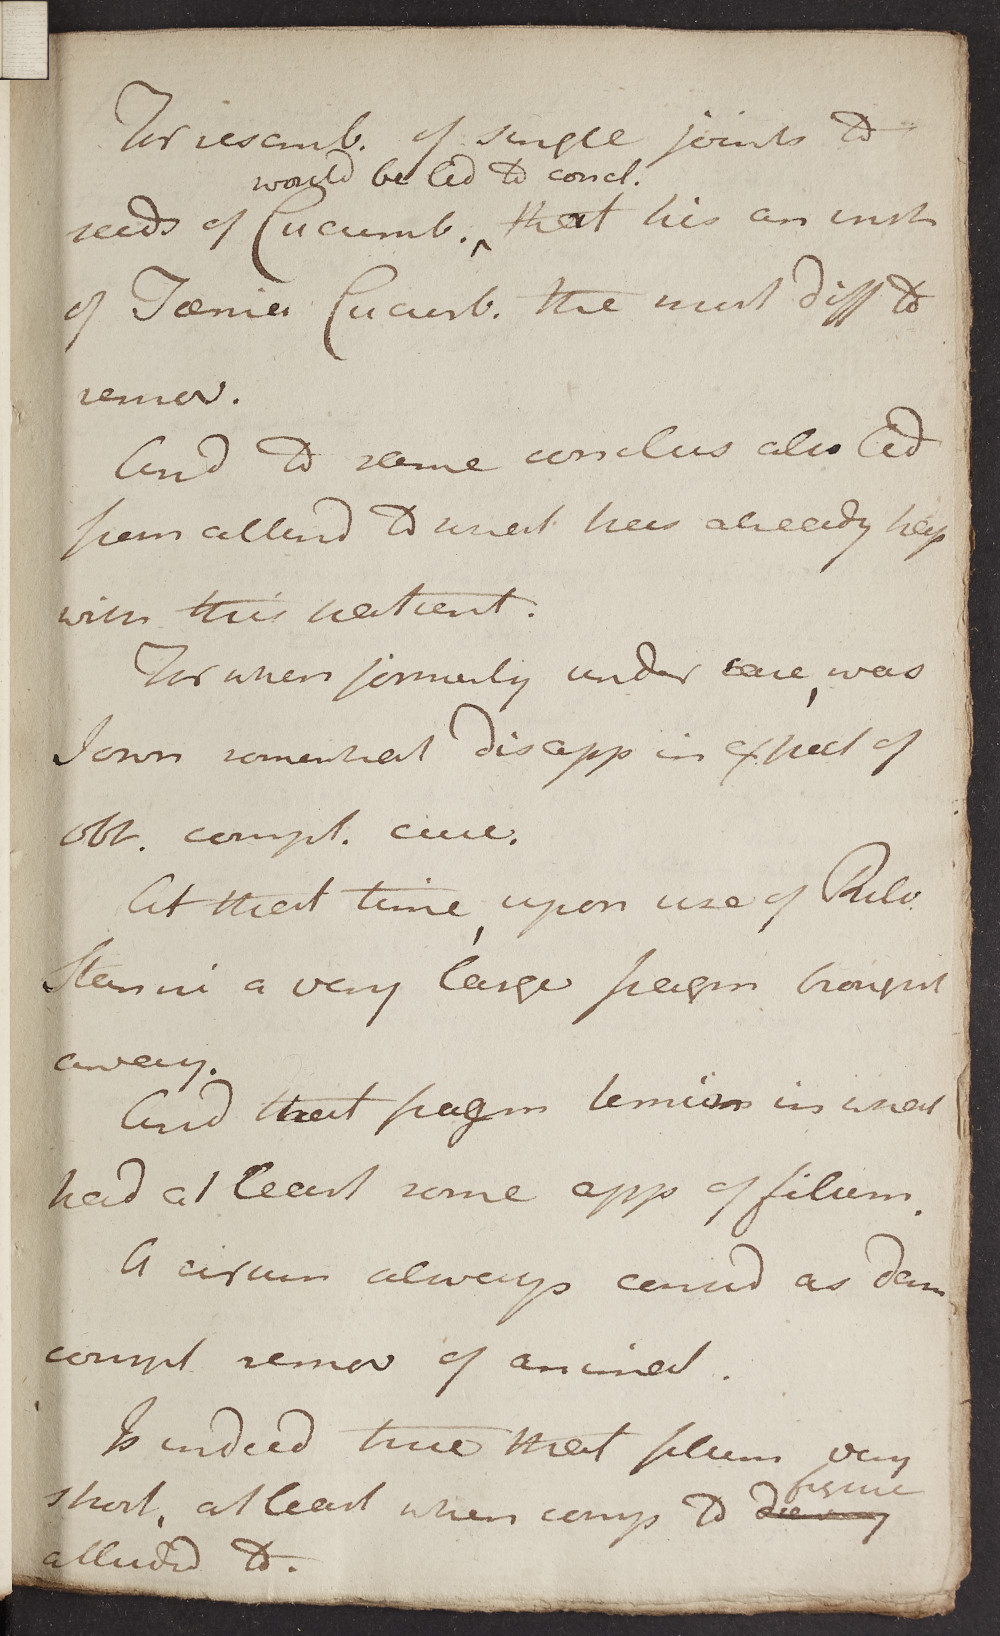 For resemb. of single joints to
would be led to concl.
seeds of Cucumb. ^ that his an inst
of Tænia Cucurb. the most diff to
remov.
And to same conclus also led
from attend to what has already hap
with this patient.
For when formerly under care, was
I own somewhat disapp in expect of
obt. compl. cure.
At that time, upon use of Pulv.
Stanni a very large fragm brought
away.
And that fragm termin in what
had at least some app of filum.
A circum always consid as dem
compl remov of animal.
Is indeed true that filum very
short, at least when comp to figure
alluded to.